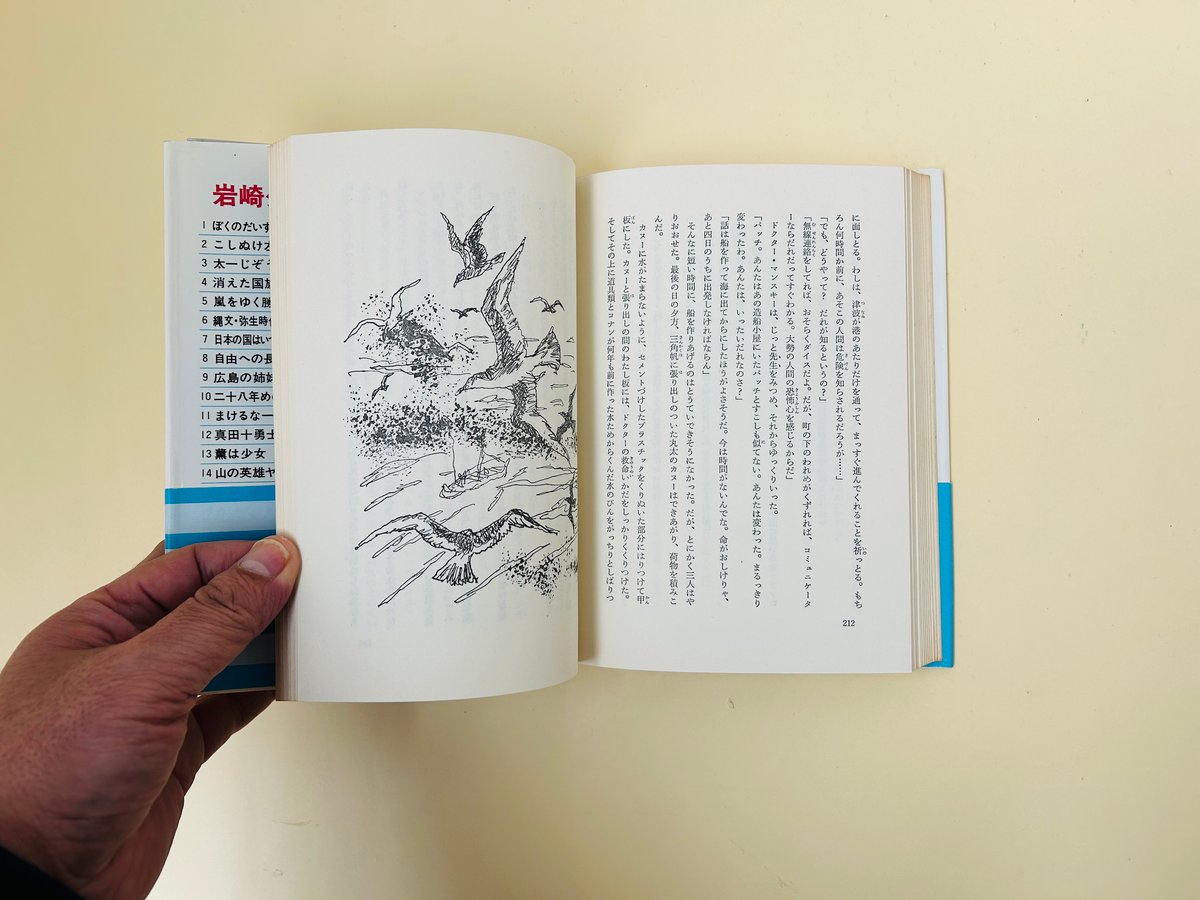 岩崎
1 ぼくのだいす
2 こしぬけさ
3 太一じぞう
4 消えた国旗
5 嵐をゆく勝
6 縄文・弥生時代
7 日本の国はい
8 自由への長
9 広島の姉妹
10 二十八年め
11 まけるな一
12 真田十勇士
13 薫は少女
14 山の英雄ヤ
に面しとる。わしは、津波が港のあたりだけを通って、まっすぐ進んでくれることを祈っとる。もち
ろん何時間か前に、あそこの人間は危険を知らされるだろうが……」
「でも、どうやって? だれが知るというの?」
「無線連絡をしてれば、おそらくダイスだよ。だが、町の下のわれめがくずれれば、コミュニケータ
ーならだれだってすぐわかる。大勢の人間の恐怖心を感じるからだ」
ドクター・マンスキーは、じっと先生をみつめ、それからゆっくりいった。
「パッチ。あんたはあの造船小屋にいたパッチとすこしも似てない。あんたは変わった。まるっきり
変わったわ。あんたは、いったいだれなのさ?」
「話は船を作って海に出てからにしたほうがよさそうだ。今は時間がないんでな。命がおしけりゃ、
あと四日のうちに出発しなければならん」
そんなに短い時間に、船を作りあげるのはとうていできそうになかった。だが、とにかく三人はや
りおおせた。最後の日の夕方、三角帆に張り出しのついた丸太のカヌーはできあがり、荷物を積みこ
んだ。
カヌーに水がたまらないように、セメントづけしたプラスチックをくりぬいた部分にはりつけて甲
板にした。カヌーと張り出しの間のわたし板には、ドクターの救命いかだをしっかりくくりつけた。
そしてその上に道具類とコナンが何年も前に作った水ためからくんだ水のびんをがっちりとしばりつ
212